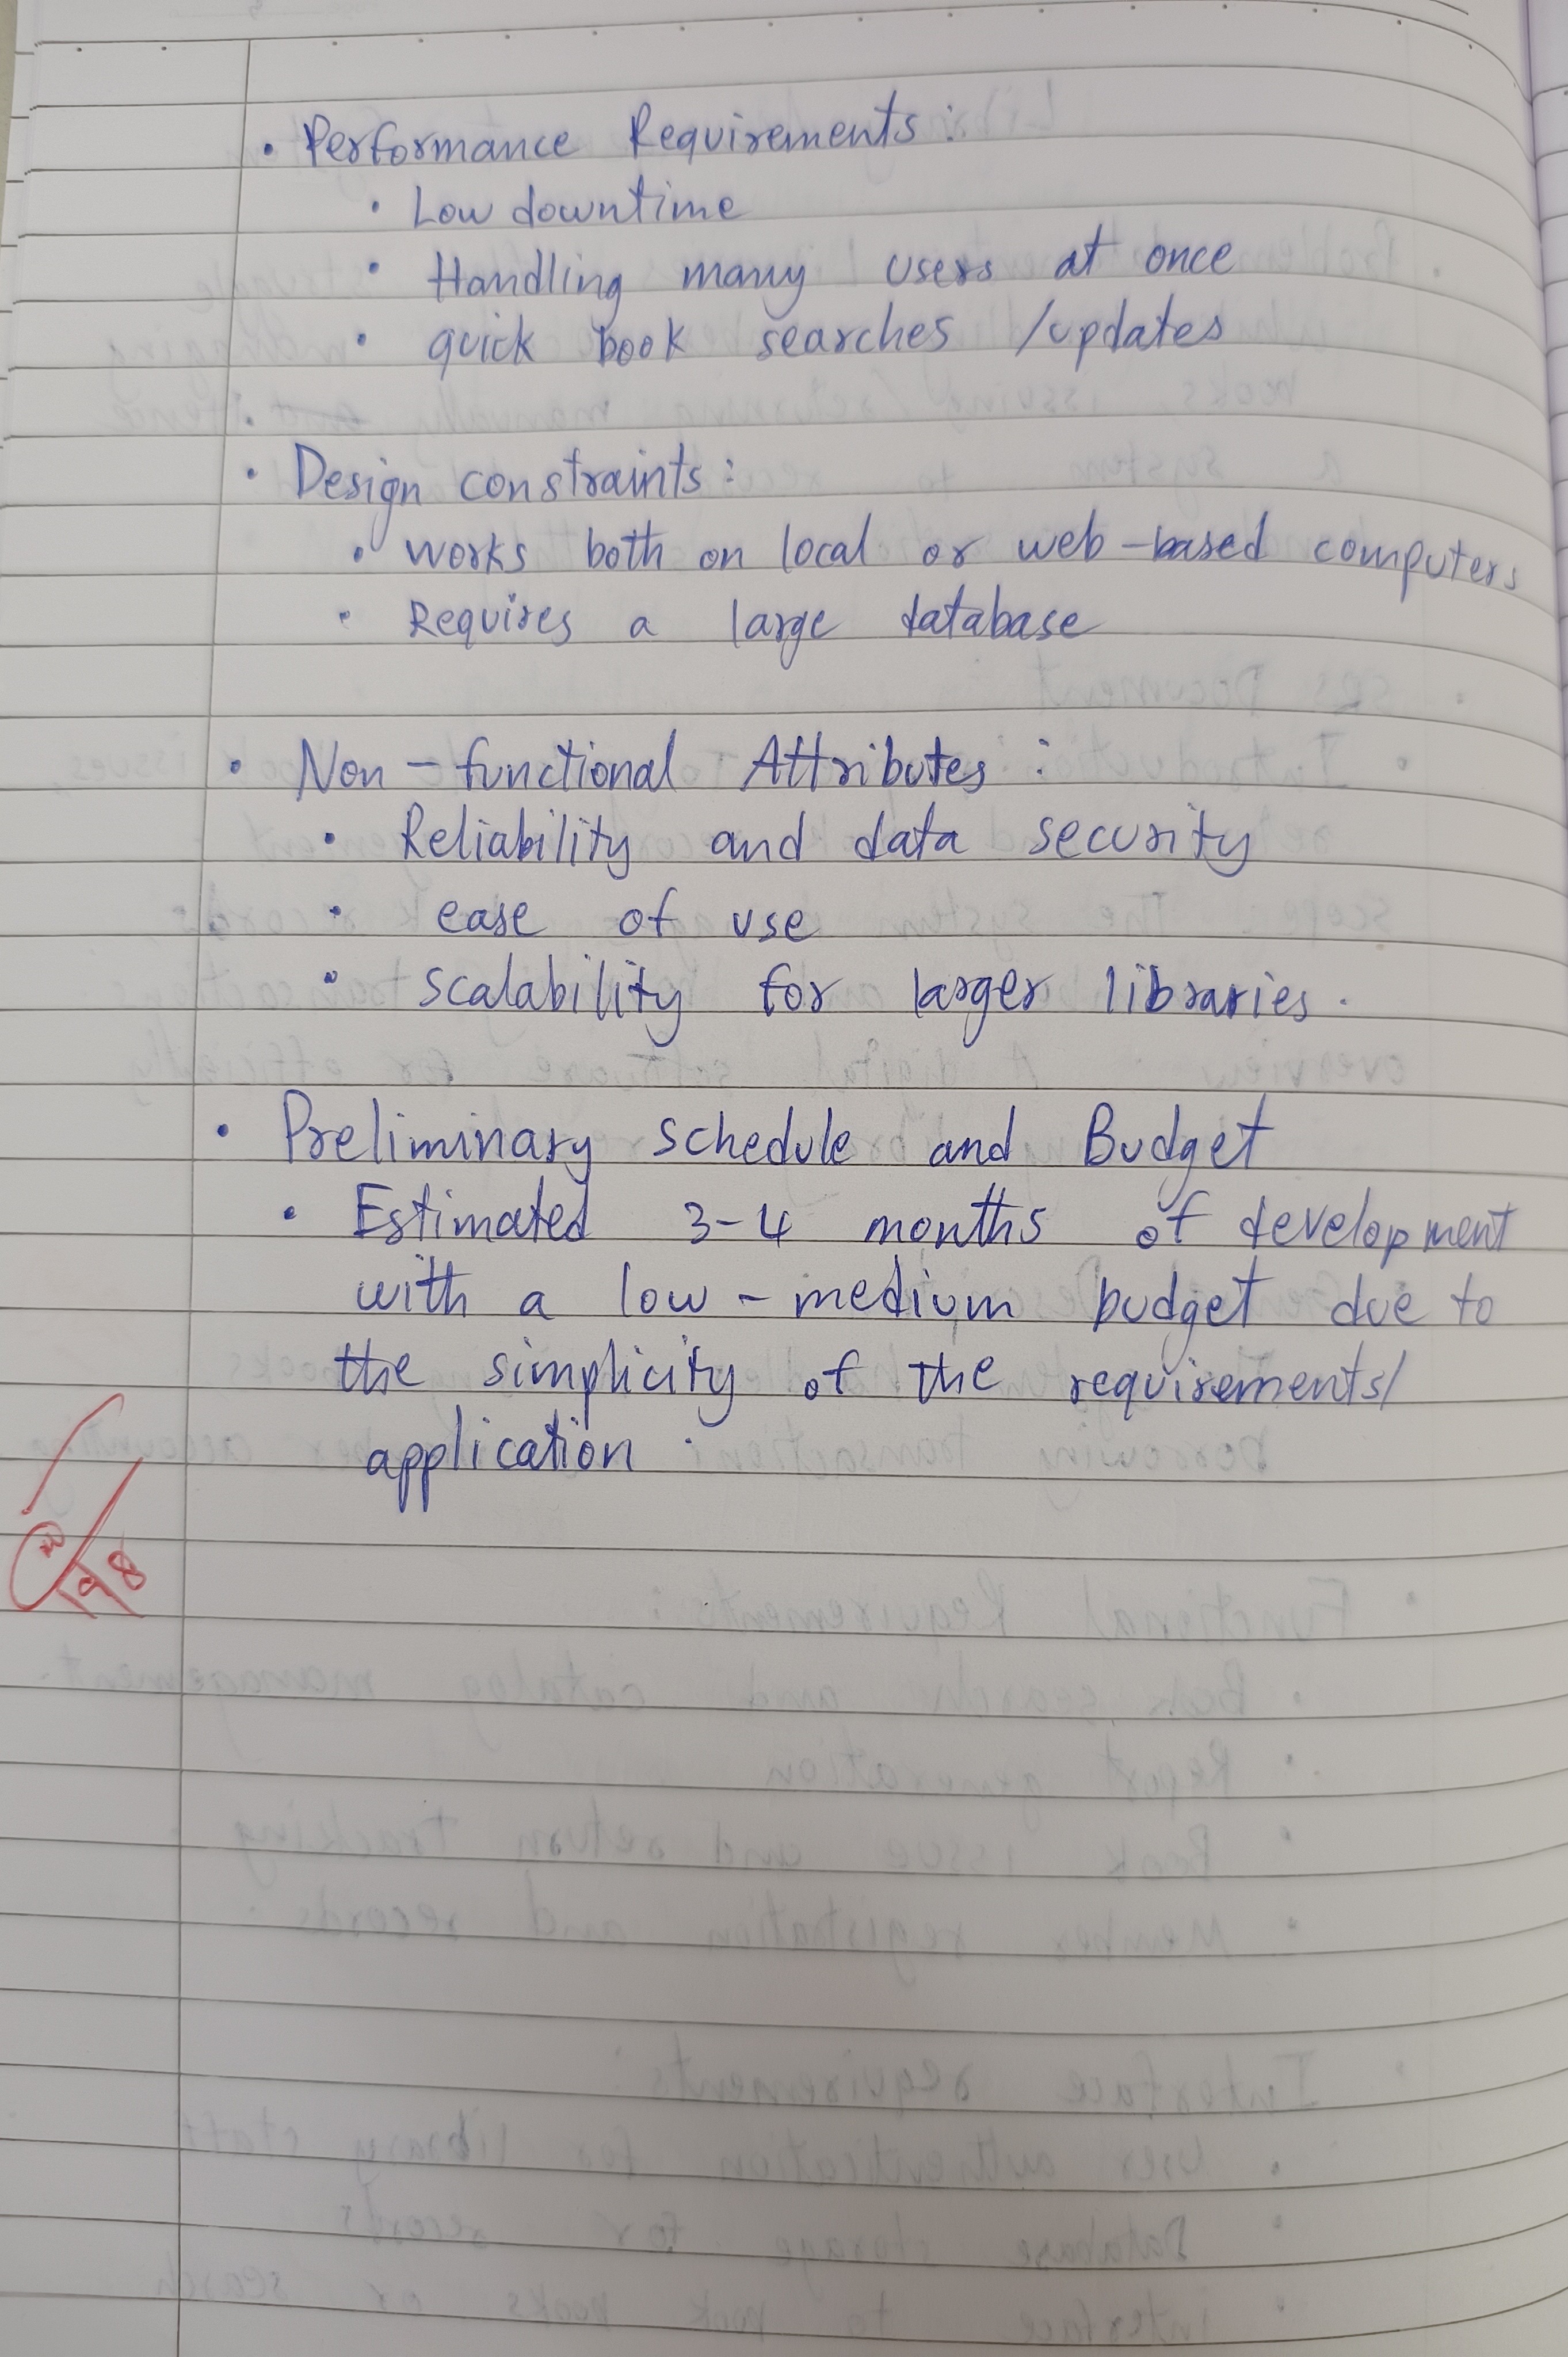 • Performance Requirements :
• Low downtime
• Handling many users at once
• quick book searches /updates
• Design constraints :
• works both on local or web-based computers
• Requires a large database
• Non-functional Attributes :
• Reliability and data security
• ease of use
• scalability for larger libraries.
• Preliminary schedule and Budget
• Estimated 3-4 months of development
with a low-medium budget due to
the simplicity of the requirements/
application.